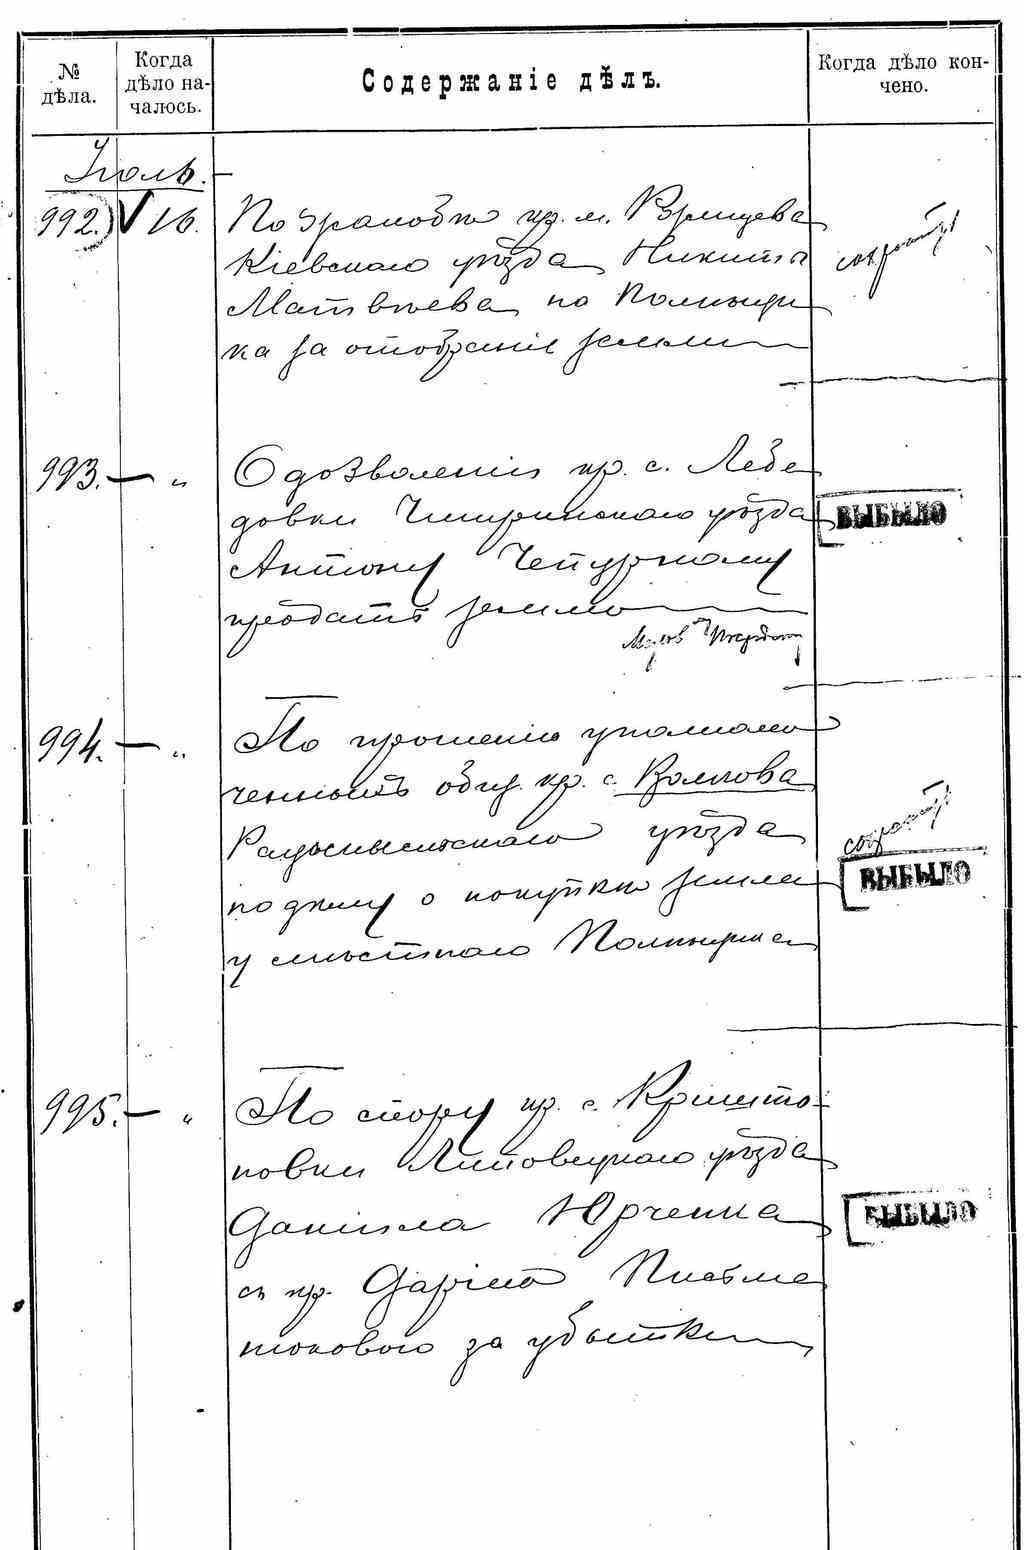 № дѣла.
Когда дѣло на-
чалось.
Содержаніе дѣлъ.
Когда дѣло кон-
чено.
Іюль.
992. 16. По жалобѣ кр. м.
Кіевскаго уѣзда Никиты
Матвѣева на Помѣщи
ка за отобраніе земли
993. — „ О дозволеніи кр. с. Лебе
довки Чигиринскаго уѣзда
Антону Чепурному
продать землю
ВЫБЫЛО
994. — „ По прошенію уполномо
ченныхъ общ. кр. с.
Радомысльскаго уѣзда
о покупкѣ земли
у мѣстнаго Помѣщика
ВЫБЫЛО
995. — „ По спору кр. с. Кришто-
повки Липовецкаго уѣзда
Даніила Юрченка
съ кр. Даріею Письмен
за убытки
ВЫБЫЛО